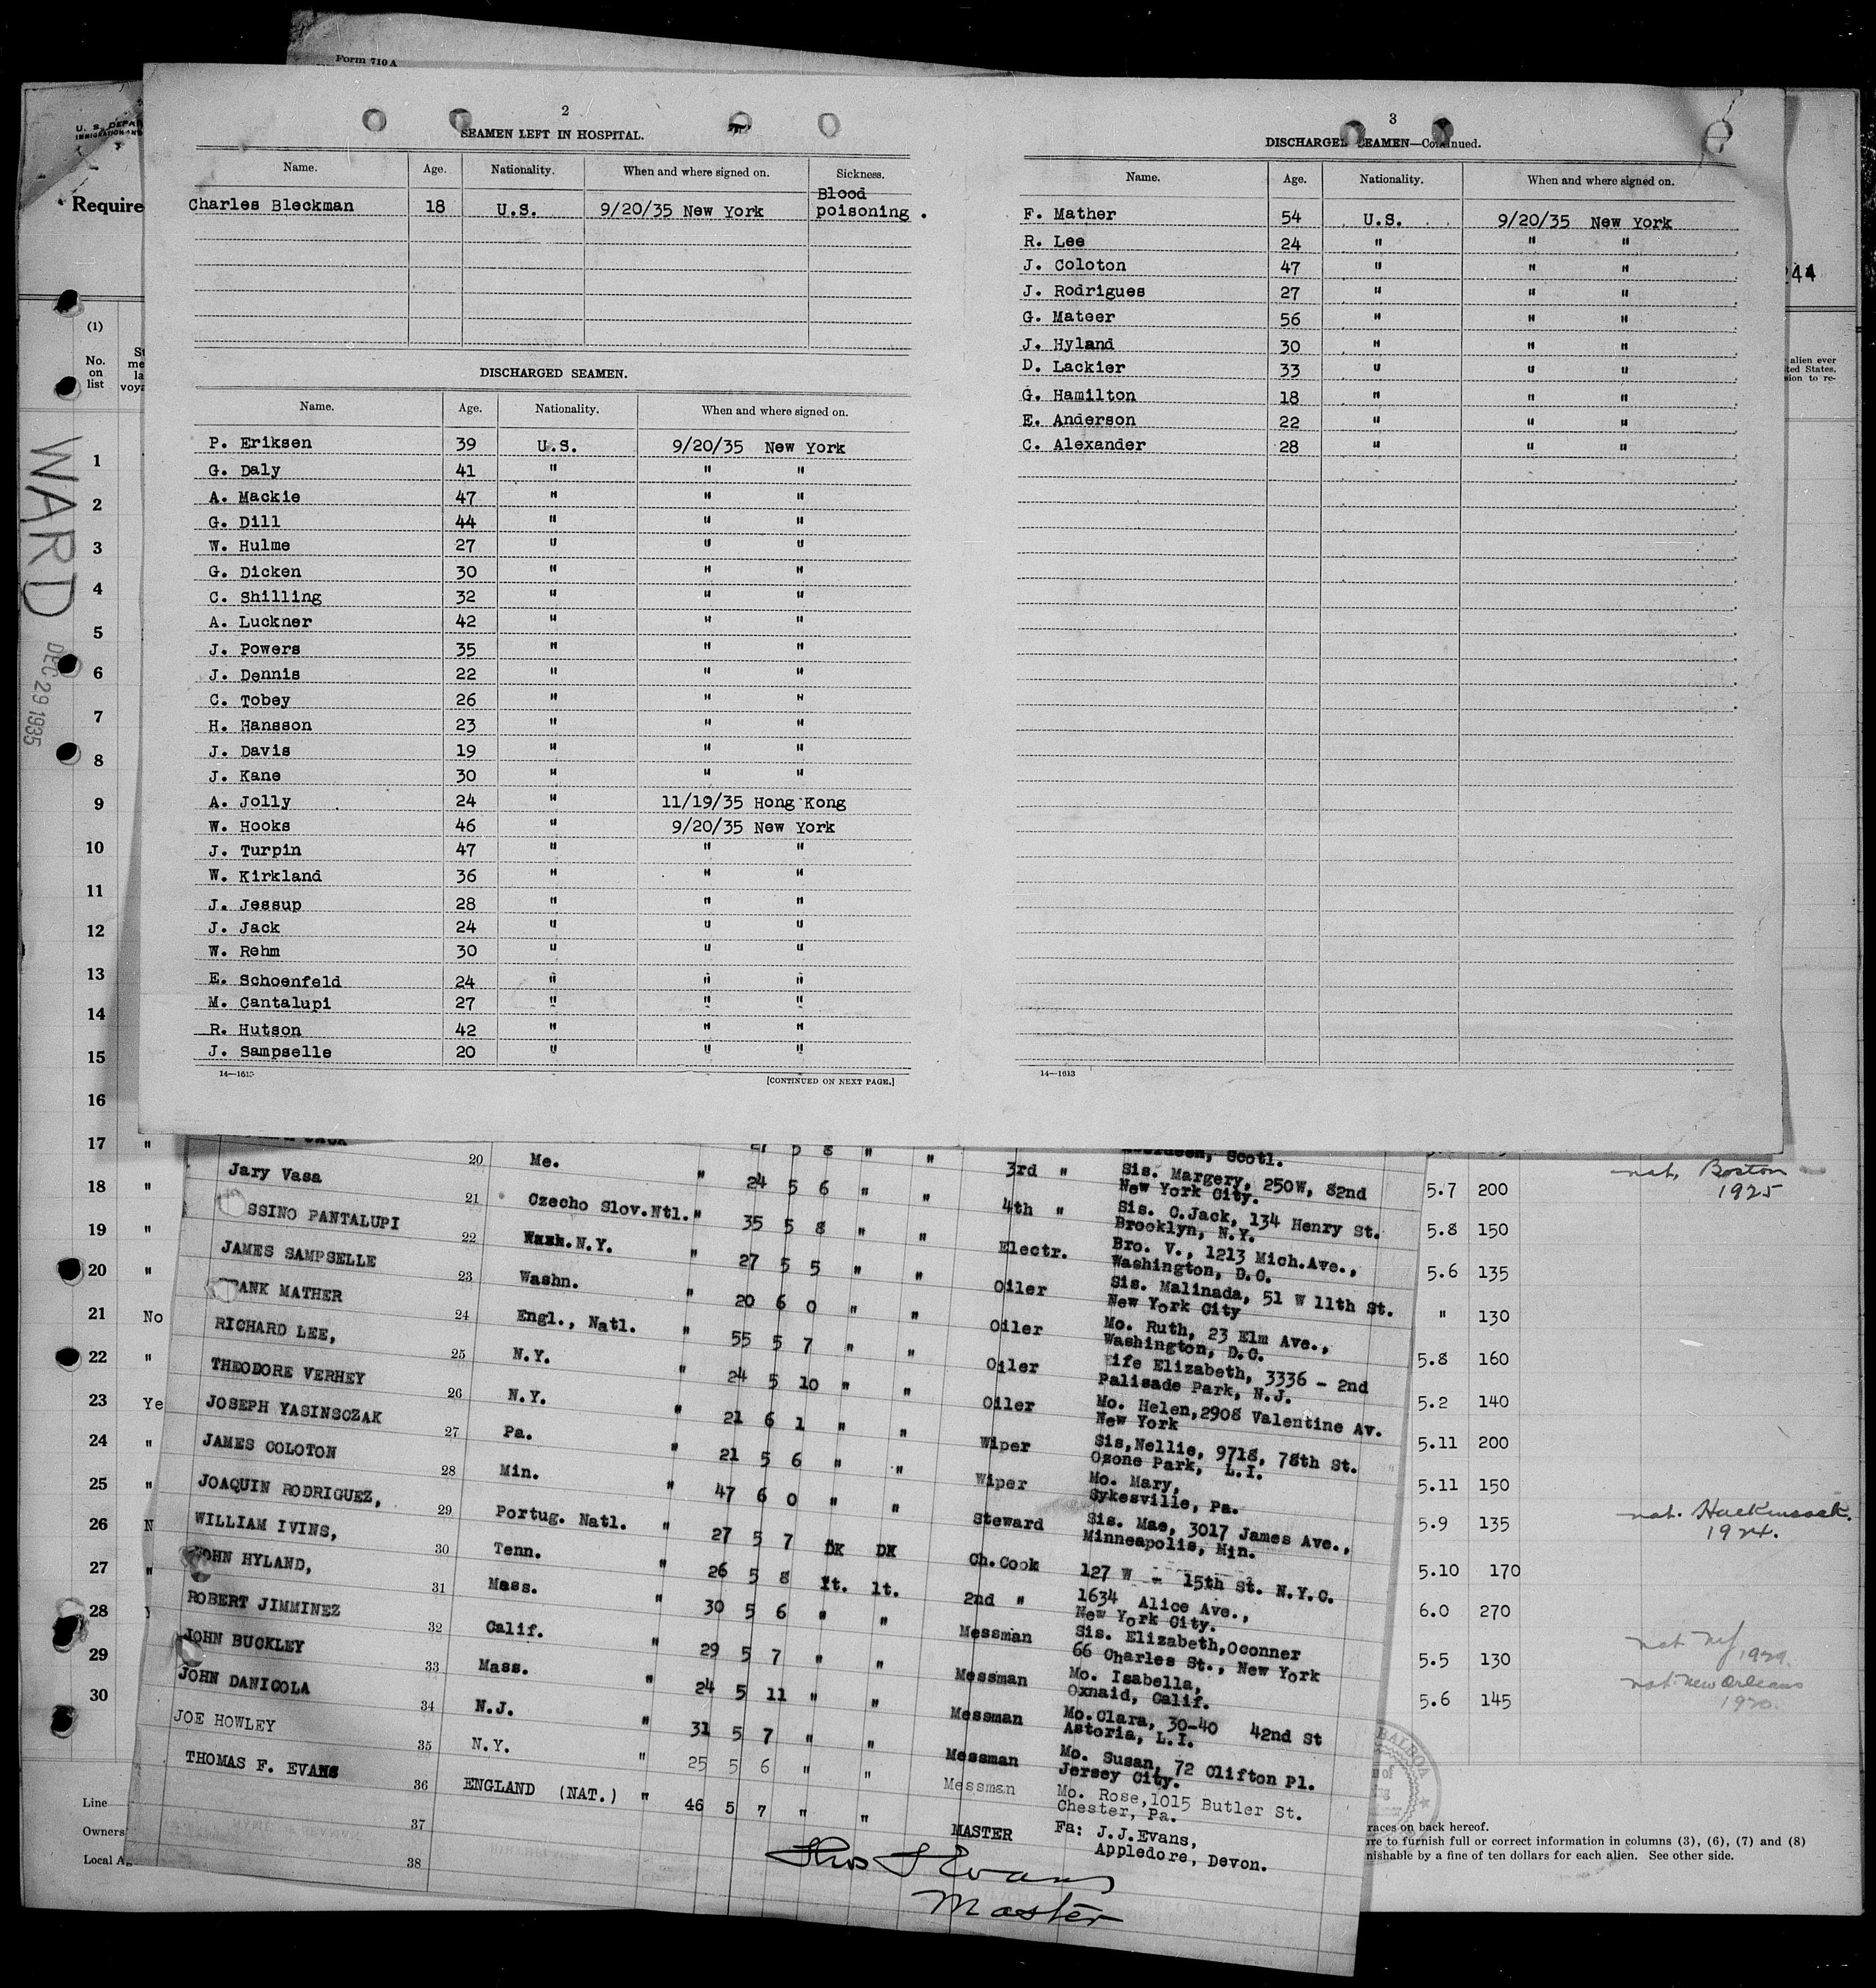 Form 710 A
U. S. DEPAR
IMMIGRATION AND
Require
244
(1)
No.
on
list
St
me
la
voya
alien ever
ted States,
sion to re-
WARD
DEC 29 1935
2
SEAMEN LEFT IN HOSPITAL.
Name. Age. Nationality. When and where signed on. Sickness.
Charles Bleckman 18 U.S. 9/20/35 New York Blood
poisoning .
DISCHARGED SEAMEN.
Name. Age. Nationality. When and where signed on.
P. Eriksen 39 U.S. 9/20/35 New York
G. Daly 41 " " "
A. Mackie 47 " " "
G. Dill 44 " " "
W. Hulme 27 " " "
G. Dicken 30 " " "
C. Shilling 32 " " "
A. Luckner 42 " " "
J. Powers 35 " " "
J. Dennis 22 " " "
C. Tobey 26 " " "
H. Hansson 23 " " "
J. Davis 19 " " "
J. Kane 30 " " "
A. Jolly 24 " 11/19/35 Hong Kong
W. Hooks 46 " 9/20/35 New York
J. Turpin 47 " " "
W. Kirkland 36 " " "
J. Jessup 28 " " "
J. Jack 24 " " "
W. Rehm 30 " " "
E. Schoenfeld 24 " " "
M. Cantalupi 27 " " "
R. Hutson 42 " " "
J. Sampselle 20 " " "
14—1613
[CONTINUED ON NEXT PAGE.]
3
DISCHARGED SEAMEN—Continued.
Name. Age. Nationality. When and where signed on.
F. Mather 54 U.S. 9/20/35 New York
R. Lee 24 " " "
J. Coloton 47 " " "
J. Rodrigues 27 " " "
G. Mateer 56 " " "
J. Hyland 30 " " "
D. Lackier 33 " " "
G. Hamilton 18 " " "
E. Anderson 22 " " "
C. Alexander 28 " " "
14—1613
1
2
3
4
5
6
7
8
9
10
11
12
13
14
15
16
17 "
18 "
19 "
20 "
21 No
22 "
23 Ye
24 "
25 "
26 N
27 "
28
29
30
Line
Owners
Local Ag
27 5 8 " " Scotl.
Jary Vasa 20 Me. " 24 5 6 " " 3rd " Sis. Margery, 250W, 82nd
New York City.
SSINO PANTALUPI 21 Czecho Slov.Ntl. " 35 5 8 " " 4th " Sis. C.Jack, 134 Henry St.
Brooklyn, N.Y.
JAMES SAMPSELLE 22 N.Y. " 27 5 5 " " Electr. Bro. V., 1213 Mich.Ave.,
Washington, D.C.
ANK MATHER 23 Washn. " 20 6 0 " " Oiler Sis. Malinada, 51 W 11th St.
New York City
RICHARD LEE, 24 Engl., Natl. " 55 5 7 " " Oiler Mo. Ruth, 23 Elm Ave.,
Washington, D.C.
THEODORE VERHEY 25 N.Y. " 24 5 10 " " Oiler ife Elizabeth, 3336 - 2nd
Palisade Park, N.J.
JOSEPH YASINSCZAK 26 N.Y. " 21 6 1 " " Oiler Mo. Helen,2908 Valentine Av.
New York
JAMES COLOTON 27 Pa. " 21 5 6 " " Wiper Sis,Nellie, 9718, 78th St.
Ozone Park, L.I.
JOAQUIN RODRIGUEZ, 28 Min. " 47 6 0 " " Wiper Mo. Mary,
Sykesville, Pa.
WILLIAM IVINS, 29 Portug. Natl. " 27 5 7 DK DK Steward Sis. Mae, 3017 James Ave.,
Minneapolis, Min.
JOHN HYLAND, 30 Tenn. " 26 5 8 lt. lt. Ch.Cook 127 W - 15th St. N.Y.C.
ROBERT JIMMINEZ 31 Mass. " 30 5 6 " " 2nd " 1634 Alice Ave.,
New York City.
JOHN BUCKLEY 32 Calif. " 29 5 7 " " Messman Sis. Elizabeth,Oconner
66 Charles St., New York
JOHN DANICOLA 33 Mass. " 24 5 11 " " Messman Mo. Isabella,
Oxnaid, Calif.
JOE HOWLEY 34 N.J. " 31 5 7 " " Messman Mo.Clara, 30-40 42nd St
Astoria, L.I.
THOMAS F. EVANS 35 N.Y. " 25 5 6 " " Messman Mo. Susan, 72 Clifton Pl.
Jersey City.
36 ENGLAND (NAT.) " 46 5 7 " " Messman Mo. Rose,1015 Butler St.
Chester, Pa.
37 MASTER Fa: J.J.Evans,
Appledore, Devon.
38
Thos F Evans
Master
5.7 200 nat. Boston
1925
5.8 150
5.6 135
" 130
5.8 160
5.2 140
5.11 200
5.11 150
5.9 135 nat. Hackensack.
1924.
5.10 170
6.0 270
5.5 130 nat. 1929.
5.6 145 nat. New Orleans
1920.
BALBOA
races on back hereof.
re to furnish full or correct information in columns (3), (6), (7) and (8)
nishable by a fine of ten dollars for each alien. See other side.